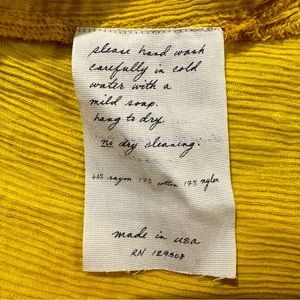 please hand wash
carefully in cold
water with a
mild soap.
hang to dry.
no dry cleaning.
66% rayon 17% cotton 17% nylon
made in usa
RN 129308